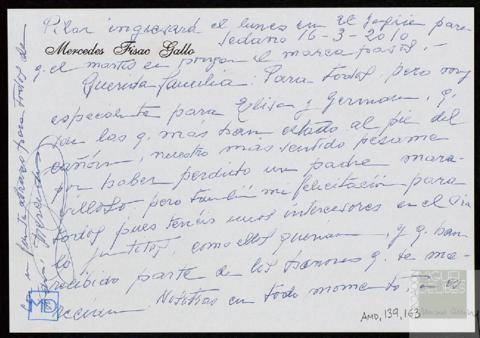 Pilar ingresará el lunes en el para
Sedano 16-3-2010
Mercedes Fisac Gallo
q. el martes le pongan el marca pasos.-
Querida familia: Para todos, pero muy
especialmente para Elisa y Germán, q.
son los q. mas han estado al pie del
cañón, nuestro mas sentido pésame
por haber perdido un padre mara-
villoso, pero también mi felicitación para
todos pues tenéis unos intercesores en el
juntitos, como ellos querían, y q. han
recibido parte de los honores q. se me-
recían. Nosotras en todo momento,
para todos de
Mercedes
AMD, 139, 163
MIGUEL
DELIBES